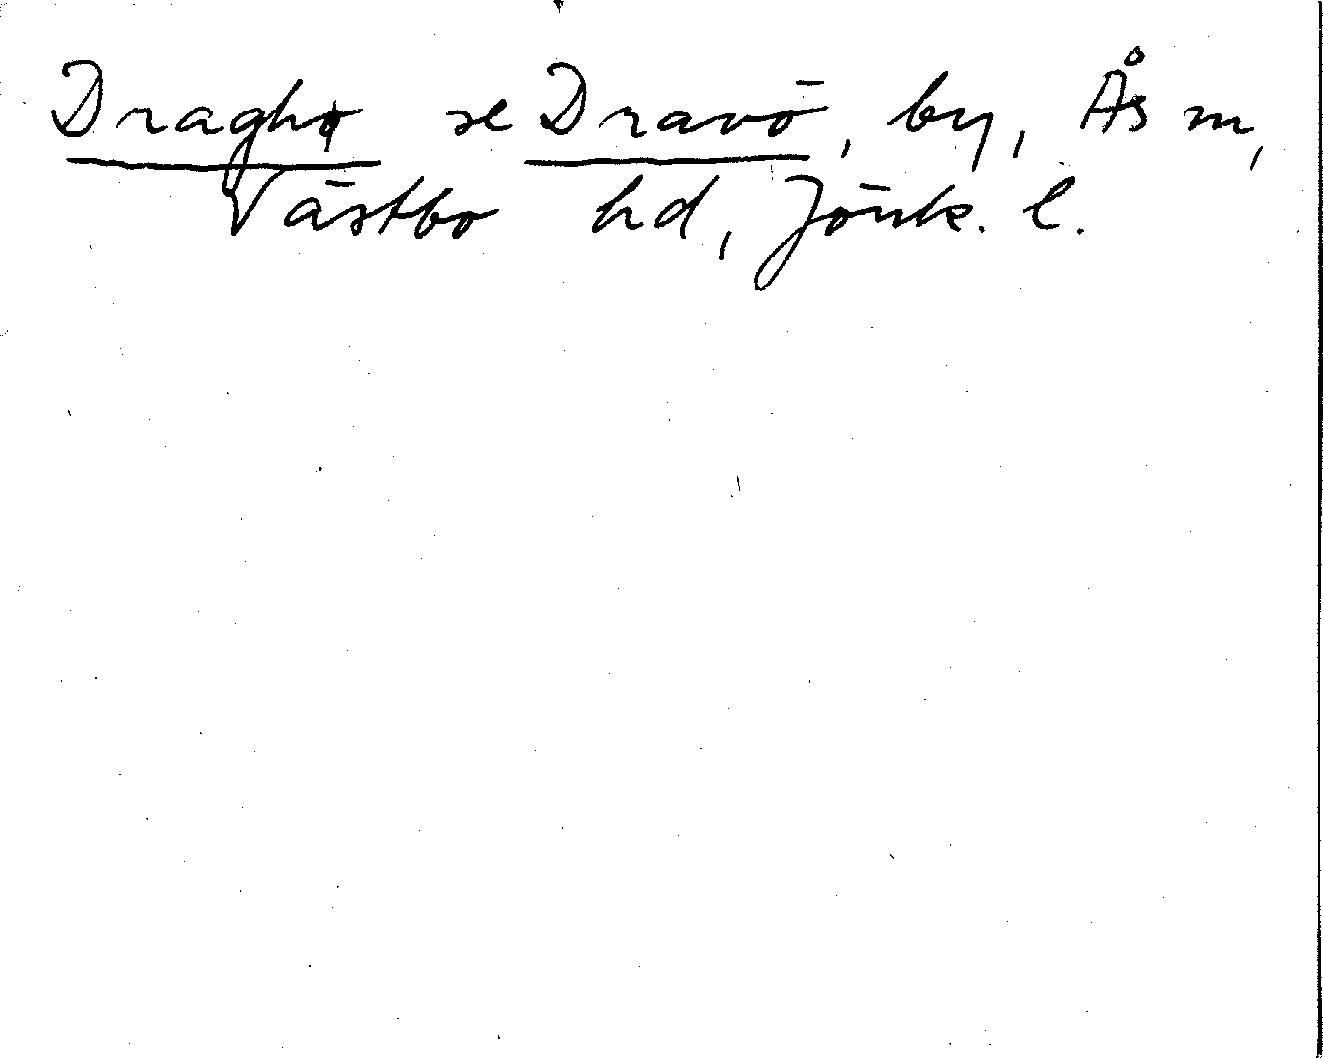 Draghø se Dravö, by, Ås sn,
Västbo hd, Jönk. l.